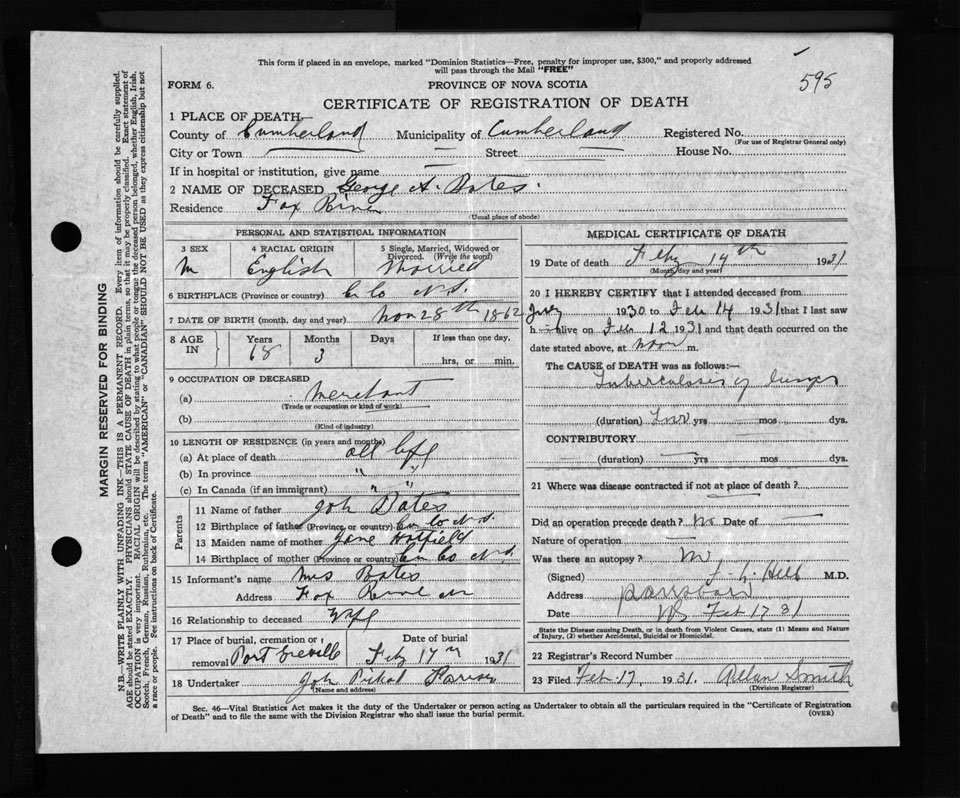 This form if placed in an envelope, marked "Dominion Statistics—Free, penalty for improper use, $300," and properly addressed
will pass through the Mail "FREE"
595
FORM 6.
PROVINCE OF NOVA SCOTIA
CERTIFICATE OF REGISTRATION OF DEATH
1 PLACE OF DEATH—
County of Cumberland Municipality of Cumberland Registered No.
(For use of Registrar General only)
City or Town — Street — House No.
If in hospital or institution, give name —
2 NAME OF DECEASED George A. Bates.
Residence Fox River
(Usual place of abode)
PERSONAL AND STATISTICAL INFORMATION
3 SEX 4 RACIAL ORIGIN 5 Single, Married, Widowed or
Divorced. (Write the word)
M English Married
6 BIRTHPLACE (Province or country) C Co N.S.
7 DATE OF BIRTH (month, day and year) Nov 28th 1862
8 AGE IN Years Months Days If less than one day,
68 3 hrs, or min.
9 OCCUPATION OF DECEASED
(a) Merchant
(Trade or occupation or kind of work)
(b)
(Kind of industry)
10 LENGTH OF RESIDENCE (in years and months)
(a) At place of death all life
(b) In province " "
(c) In Canada (if an immigrant) " "
Parents
11 Name of father Bates
12 Birthplace of father (Province or country) Co N.S.
13 Maiden name of mother Jane Hatfield
14 Birthplace of mother (Province or country) Co N.S.
15 Informant's name Mrs Bates
Address Fox River
16 Relationship to deceased Wife
17 Place of burial, cremation or
removal Port Greville
Date of burial
Feb 17th 1931
18 Undertaker
(Name and address)
MEDICAL CERTIFICATE OF DEATH
19 Date of death Feby 14th 1931
(Month, day and year)
20 I HEREBY CERTIFY that I attended deceased from
1930 to Feb 14 1931 that I last saw
h alive on Feb 12 1931 and that death occurred on the
date stated above, at noon m.
The CAUSE of DEATH was as follows:—
Tuberculosis of lungs
(duration) yrs mos dys.
CONTRIBUTORY
(duration) — yrs mos dys.
21 Where was disease contracted if not at place of death?
—
Did an operation precede death? No Date of —
Nature of operation —
Was there an autopsy? No
(Signed) Hill M.D.
Address Parrsboro
Date NS Feb 17 31
State the Disease causing Death, or in death from Violent Causes, state (1) Means and Nature
of Injury, (2) whether Accidental, Suicidal or Homicidal.
22 Registrar's Record Number
23 Filed Feb 17, 1931. Allan Smith
(Division Registrar)
Sec. 46—Vital Statistics Act makes it the duty of the Undertaker or person acting as Undertaker to obtain all the particulars required in the "Certificate of Registration
of Death" and to file the same with the Division Registrar who shall issue the burial permit. (OVER)
MARGIN RESERVED FOR BINDING
N.B.—WRITE PLAINLY WITH UNFADING INK—THIS IS A PERMANENT RECORD. Every item of information should be carefully supplied.
AGE should be stated EXACTLY. PHYSICIANS should STATE CAUSE OF DEATH in plain terms, so that it may be properly classified. Exact statement of
OCCUPATION is very important. RACIAL ORIGIN will be described by stating to what people or tongue the deceased person belonged, whether English, Irish,
Scotch, French, German, Russian, Ruthenian, etc. The terms "AMERICAN" or "CANADIAN" SHOULD NOT BE USED as they express citizenship but not
a race or people. See instructions on back of Certificate.